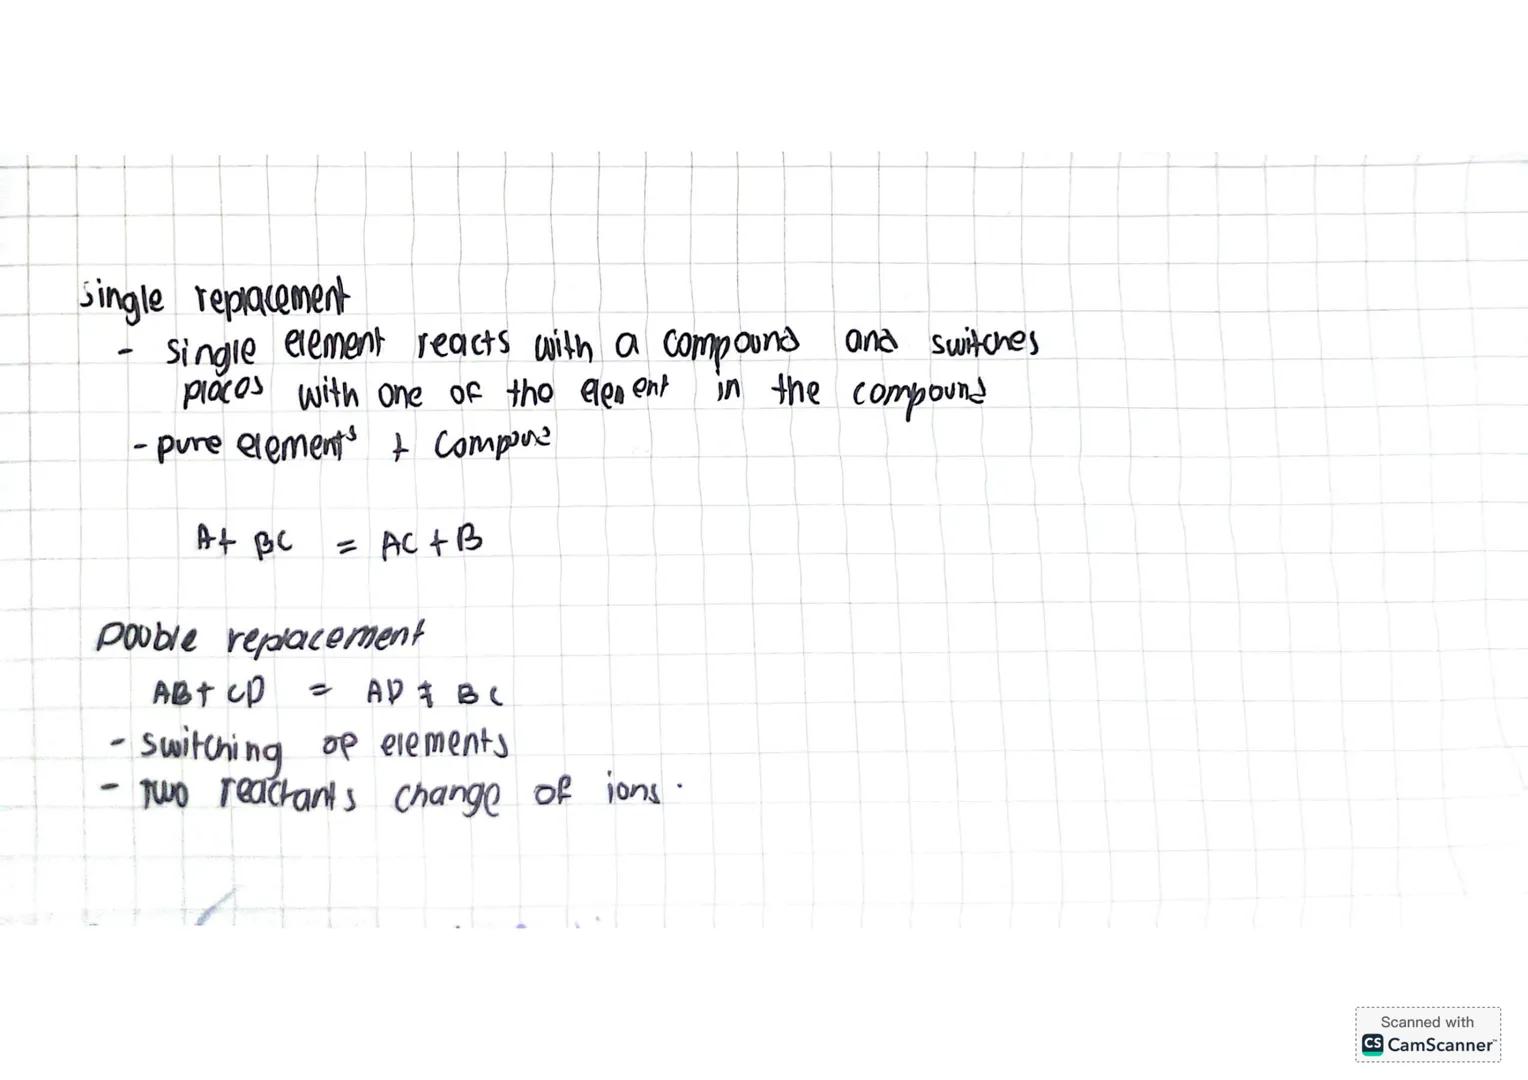 single replacement
- single element reacts with a compound and switches
places with one of the element in the compound
- pure elements + compound
A+ BC = AC + B
Double replacement
AB + CD = AD + BC
- switching of elements
- Two reactants change of ions.
Scanned with
CS CamScanner